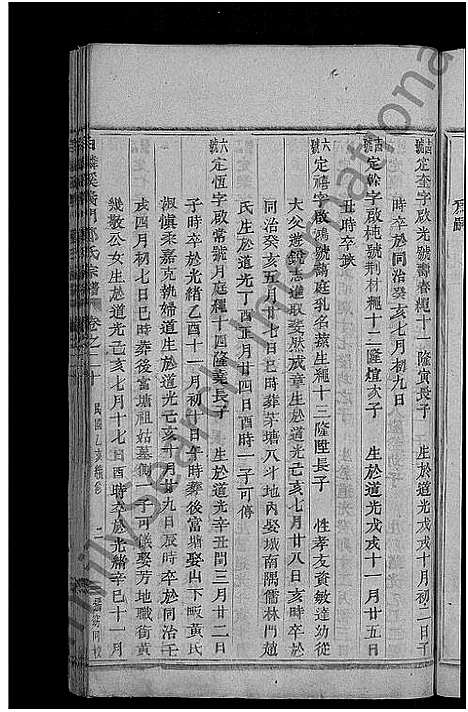 吉號定奎字啟光號壽春繩十一隆寅長子 生於道光戊戌十月初二日子
時卒於同治癸亥七月初九日
吉號定榦字啟純號荆材繩十二隆煊次子 生於道光戊戌十一月廿五日
丑時卒缺
六號定禧字啟鴻號鶴庭乳名蓀生繩十三隆陞長子 性孝友資敏達幼從
大父遊 成章生於道光己亥七月廿八日亥時卒於
同治癸亥五月廿七日巳時葬茅塘八斗地內娶城南隅儒林門趙
氏生於道光丁酉正月廿四日酉時一子可傳
六號定恆字啟常號月庭繩十四隆堯長子 生於道光辛丑閏三月廿二日
子時卒於光緒乙酉十一月初十日午時葬後當塘娶山下畈黃氏
淑慎秉嘉克執婦道生於道光己亥十月廿九日辰時卒於同治壬
亥四月初七日巳時葬後當塘祖姑墓側一子可儀娶芳地職銜黃
幾敬公女生於道光己亥七月十七日酉時卒於光緒辛巳十一月
鄭氏宗譜 卷之二十 民國乙亥續修